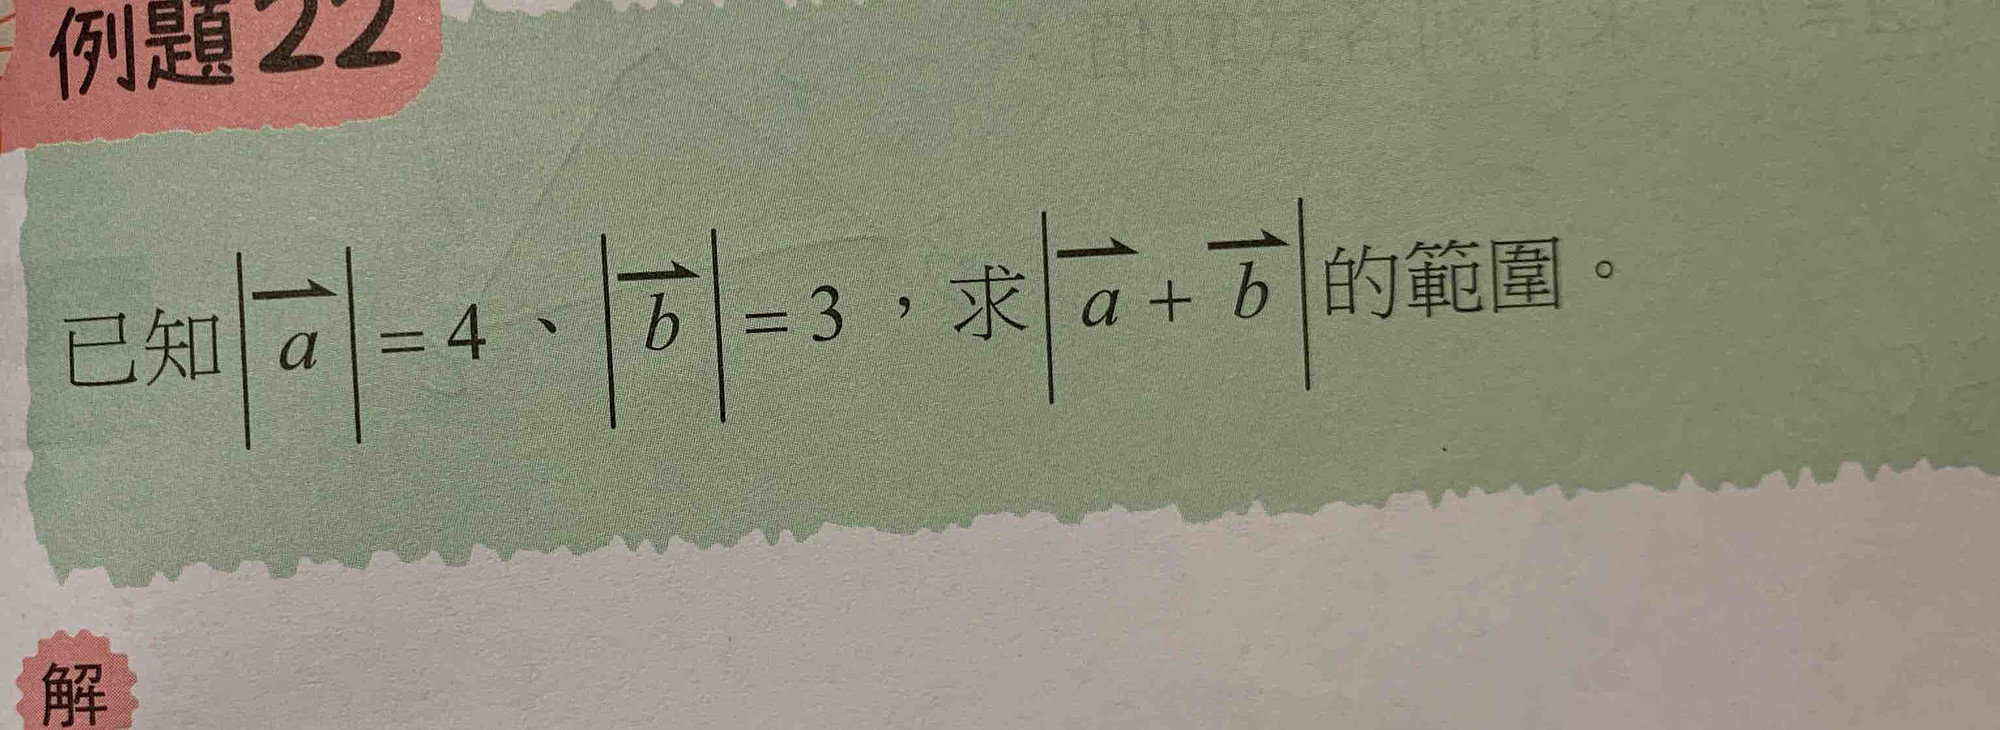 例題22
已知|\overrightarrow{a}|=4、|\overrightarrow{b}|=3,求|\overrightarrow{a}+\overrightarrow{b}|的範圍。
解